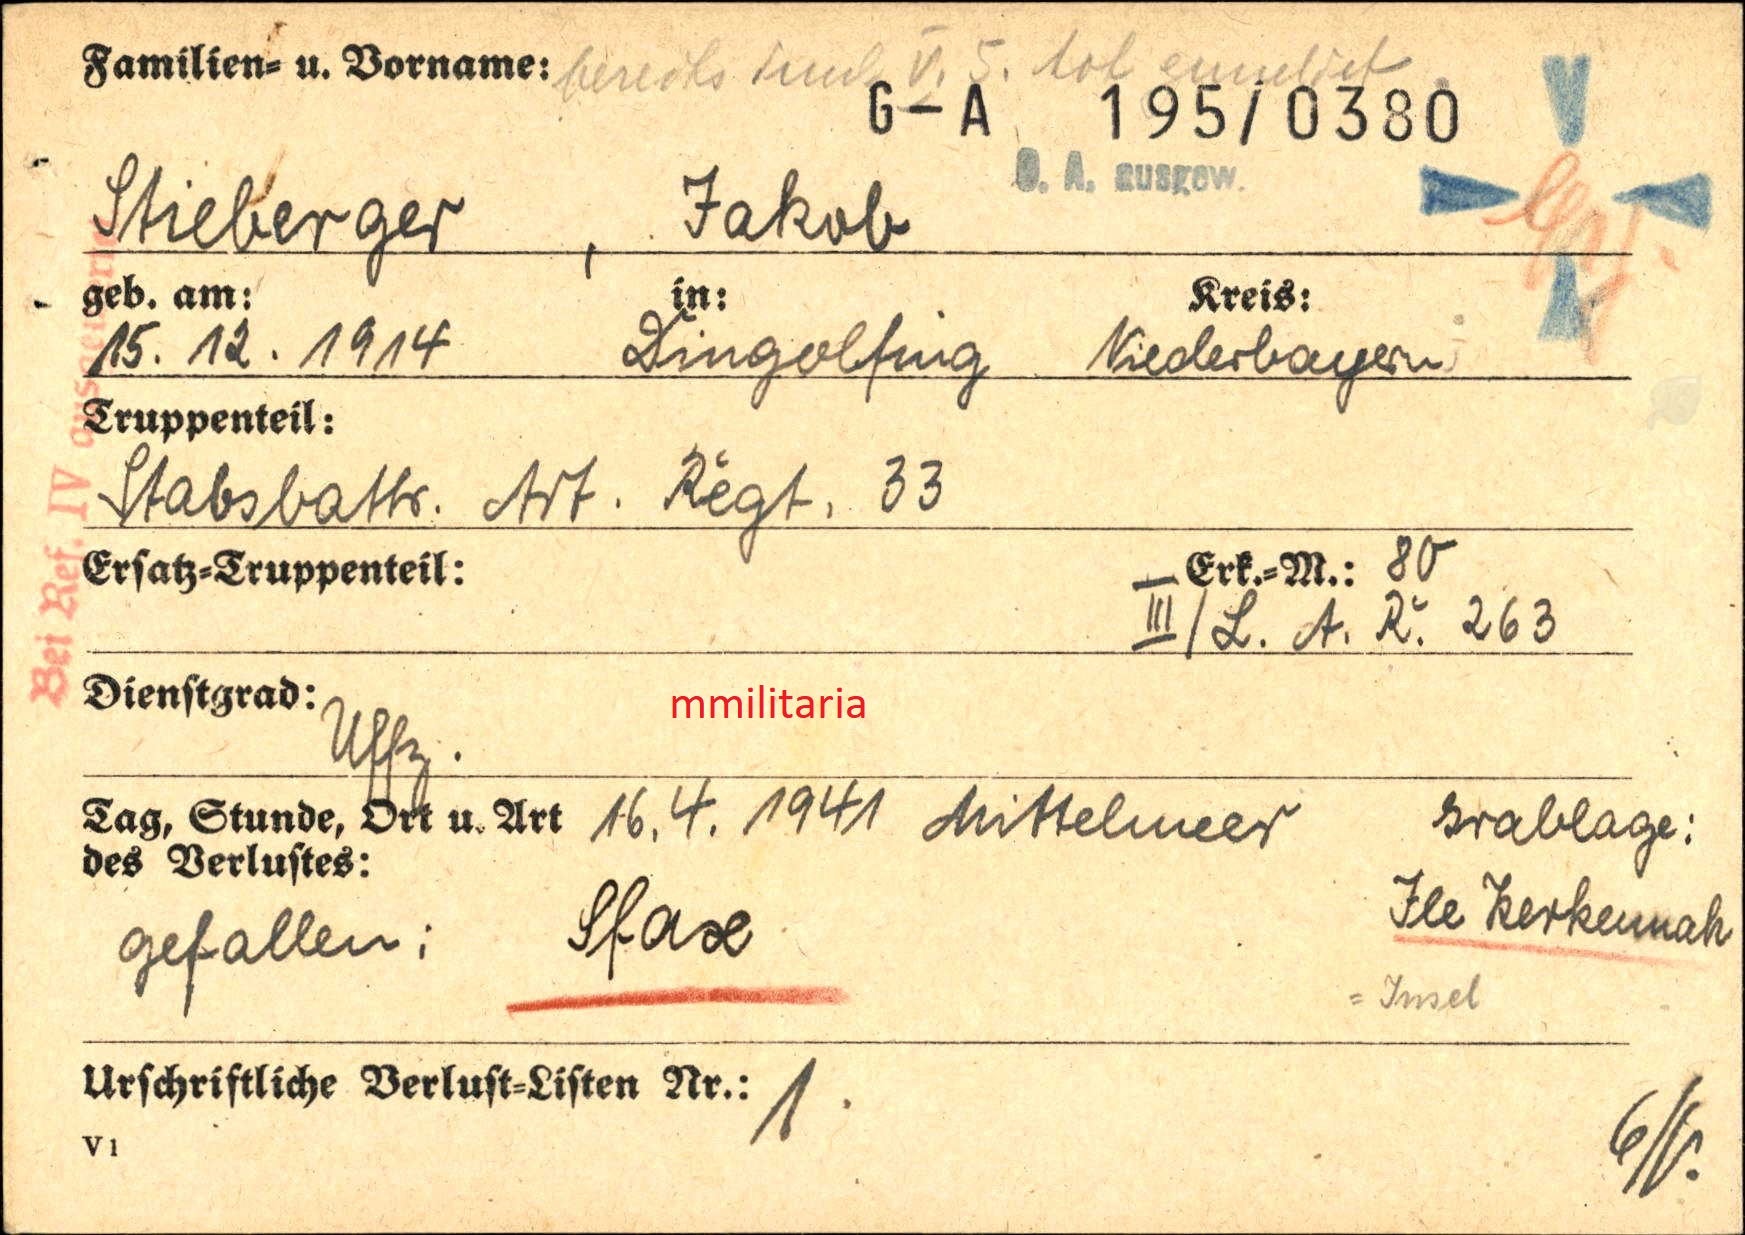 Familien- u. Vorname: bereits
G-A 195/0380
O. A. ausgew.
Stieberger, Jakob
geb. am: in: Kreis:
15. 12. 1914 Dingolfing Niederbayern
Truppenteil:
Stabsbattr. Art. Regt. 33
Ersatz-Truppenteil: Erk.-M.: 80
III/L. A. R. 263
Dienstgrad:
Uffz.
mmilitaria
Tag, Stunde, Ort u. Art 16.4. 1941 Mittelmeer Grablage:
des Verlustes:
gefallen; Sfax Ile Kerkennah
= Insel
Urschriftliche Verlust-Listen Nr.: 1.
V 1
Bei Ref. IV